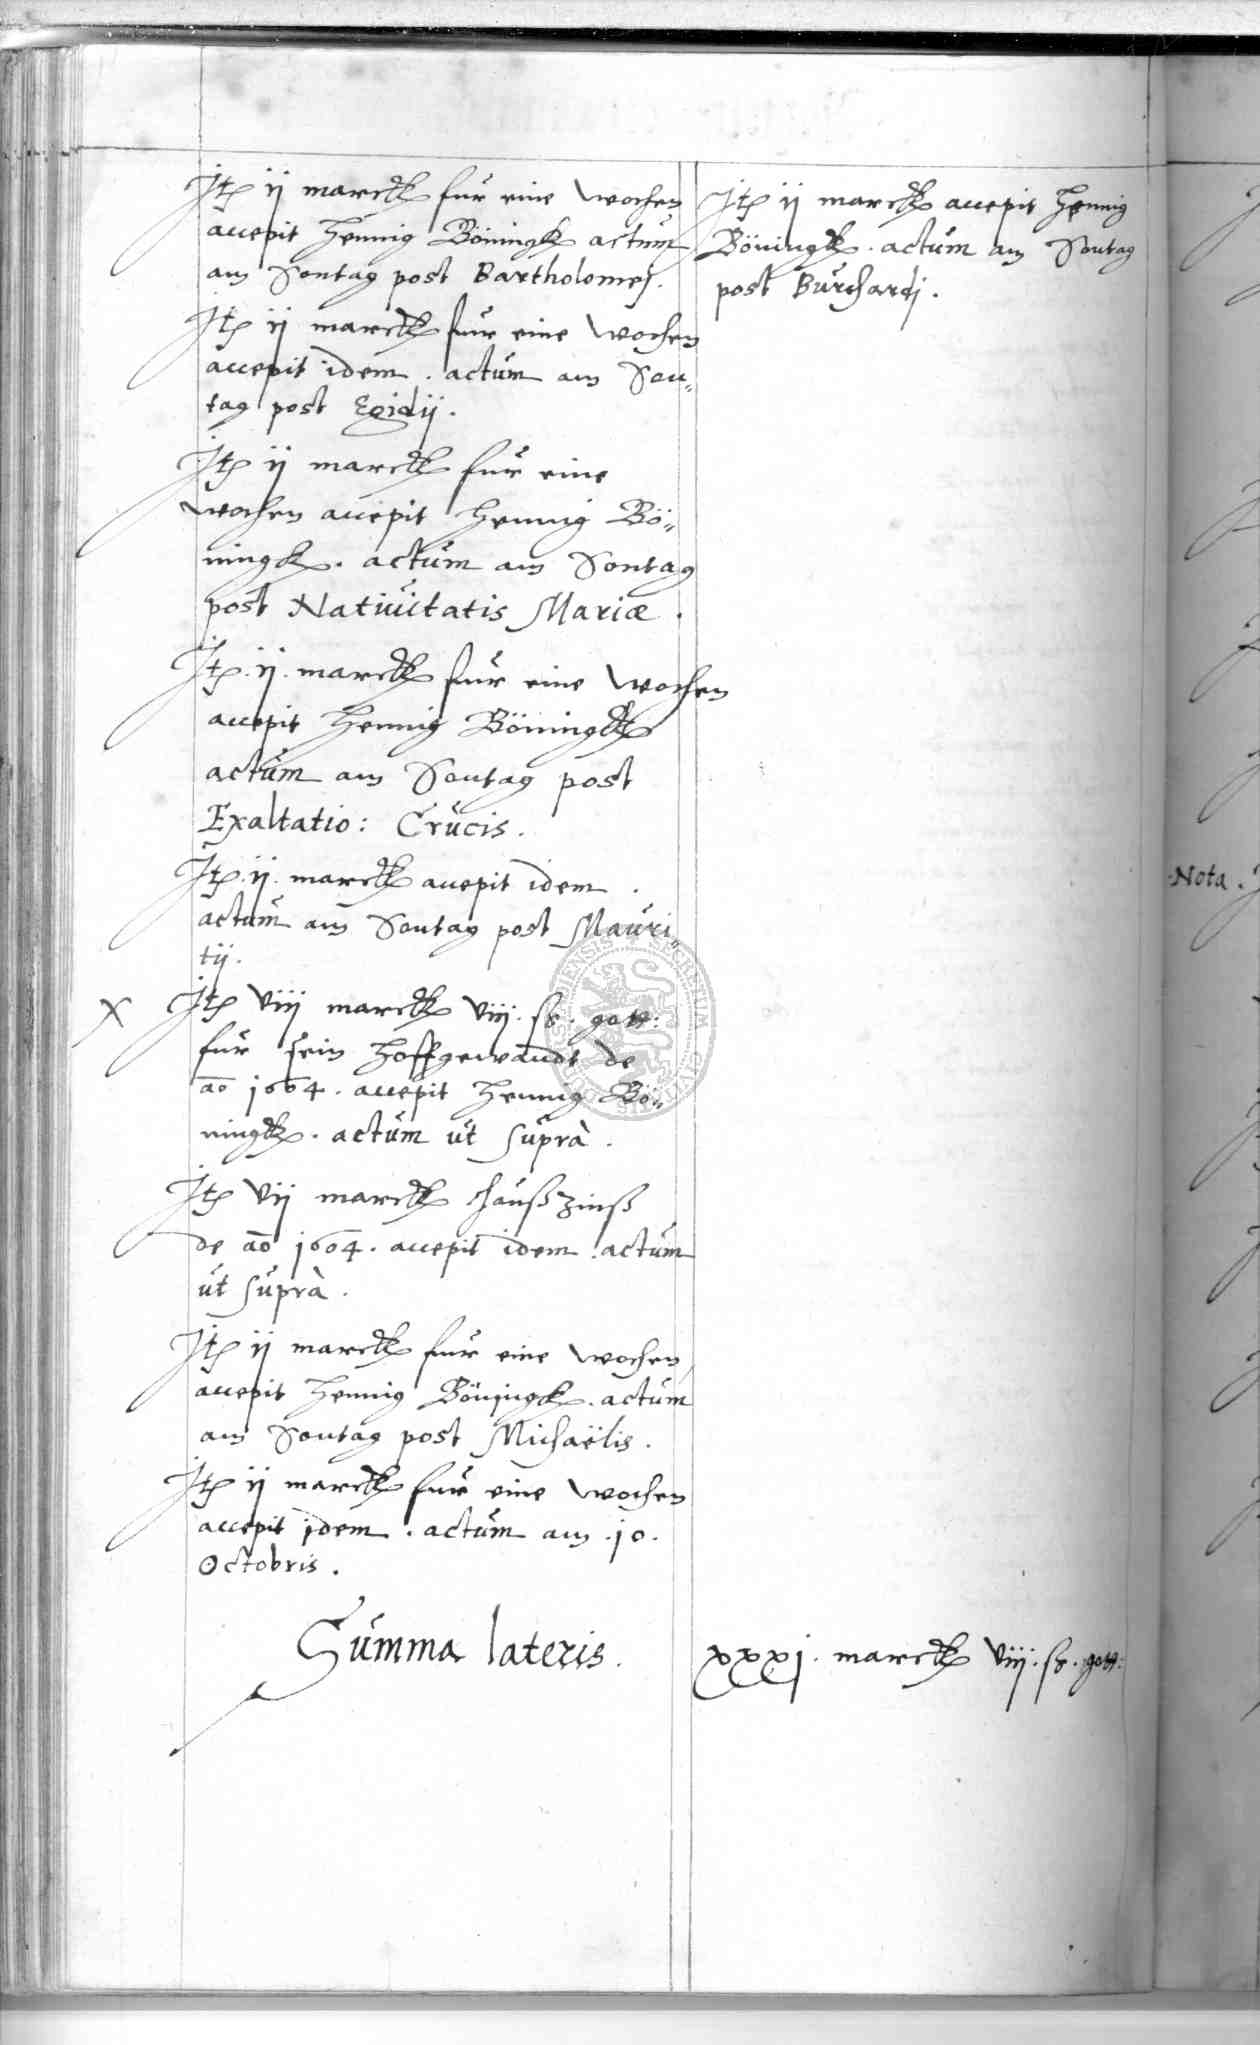 Jtem ij marck fur eine wochen
accepit Hennig Böningk actum
am Sontag post Bartholomej.
Jtem ij marck fur eine wochen
accepit idem. actum am Son„
tag post Egidij.
Jtem ij marck fur eine
wochen accepit Hennig Bö„
ningk. actum am Sontag
post Natiuitatis Mariæ.
Jtem. ij. marck fur eine wochen
accepit Hennig Böningk
actum am Sontag post
Exaltatio: Crucis.
Jtem. ij. marck accepit idem.
actum am Sontag post Mauri„
tij.
X Jtem viij marck viij. ß. gott:
fur sein Hoffgewandt de
ao 1604. accepit Hennig Bö„
ningk. actum ut suprà.
Jtem vij marck haußzinß
de ao 1604. accepit idem. actum
ut suprà.
Jtem ij marck fur eine wochen
accepit Hennig Böningk. actum
am Sontag post Michaëlis.
Jtem ij marck fur eine wochen
accepit idem. actum am .10.
Octobris.
Jtem ij marck accepit Hennig
Böningk. actum am Sontag
post Burchardj.
Summa lateris. xxxj. marck viij. ß. gott:
Nota.